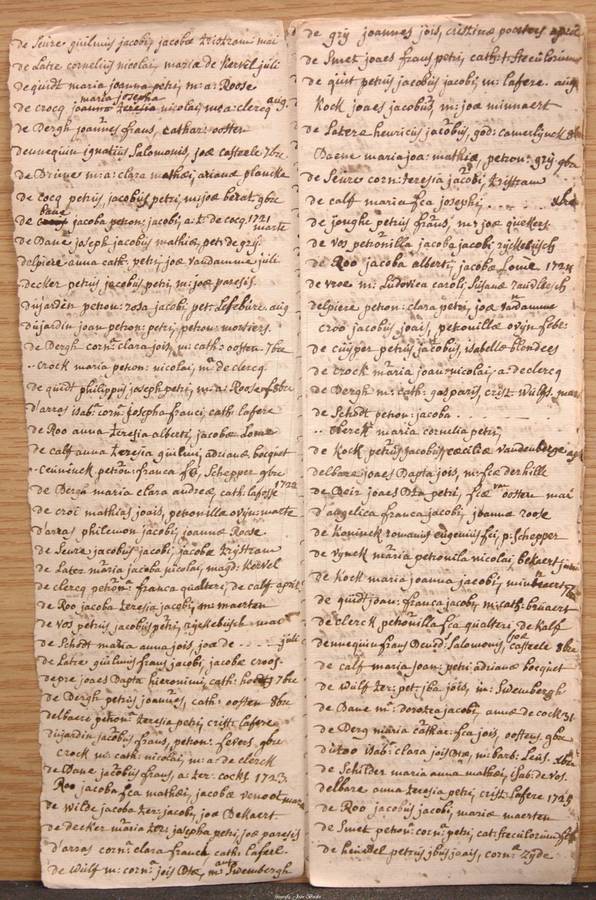 de Seure guilmus jacobj, jacobæ Tristram mai
de Latre cornelius nicolai, maria de Kervel juli
de quidt maria joanna petri, m: a: Roose
maria josepha
de crocq joanna Teresia nicolai, m: a: clercq aug.
de Bergh joannes frans, cathar: oosten
dennequin ignatius Salomonis, joæ casteele 7bre
de Brune m: a: clara mathei, ariana plancke
de cocq petrus jacobus petri, m: joæ berat gbre
bane
de jacoba petron: jacobi, a: t: de cocq. 1721 marte
de Bane joseph jacobus mathiæ, pet: de grij
delpiere anna cath: petri, joæ vandamme juli
decker petrus jacobus petri, m: joæ paresis.
dujardin petron: rosa jacobi, pet: Lefebure aug
dujardin joan petron: petri, petron: morvers.
de Bergh corn: clara jois, m: cath: oosten 7bre
-- crock maria petron: nicolai, m: de clercq
de quidt philippus joseph petri, m: a: Roose febre
d'arras isab: corn: josepha franci, cath: lafere
de Roo anna Teresia alberti, jacobæ Lome
de calf anna Teresia guilmi, adrianæ bocquet
-- ceuninck petron: franca fci, Schepper gbre
de Bergh maria clara andreæ, cath: lafosse 1722
de croci mathias joais, petronillæ ovijn: marte
d'arras philemon jacobi, joanna Roose
de Seure jacobus jacobi, jacobæ Tristram
de Later maria jacoba nicolai, magd: Kervel
de clercq petron: franca qualteri, de calf april
de Roo jacoba Teresia jacobi, m: maerten
de vos petrus jacobus petri, rijckebusch mai
de Schodt maria anna jois, joæ de - - - - juli
de Latre guilmus frans jacobi, jacobæ croos.
depre joaes Bapta hieronimi, cath: 7bre
de Bergh petrus joannes, cath: oosten 8bre
delbaere petron: Teresia petri, crist: lafere
dujardin jacobus frans, petron: fevers gbre
crock m: cath: nicolai, m: a: de clerck
de Bane jacobus frans, a: ter: cockt 1723
Roo jacoba fca mathei, jacobæ venoot mar
de wilde jacoba ter: jacobi, joæ Bekaert
de decker maria ter: josepha petri, joæ paresis
d'arras corn: clara franca cath: lafere.
de Wulf m: corn: jois Btæ, m: Swembergh
de grij joannes jois, cristinæ poosters april
de Smet joaes frans petri, cath: t Steculorium
de quit petrus jacobus jacobi, m: lafere. aug
Kock joaes jacobus, m: joæ minnaert
de Latere henricus jacobus, god: camerlijnck 8b
Baene maria joa: mathiæ, petron: grij gbre
de Seure corn: teresia jacobi, Tristram
de calf maria fca josephi, . . . . . xbre
de jonghe petrus frans, m: joæ quekers
de vos petronilla jacoba jacobi rijckebusch
de Roo jacoba alberti, jacobæ Lome 1724
de vroe m: Ludovica caroli, Susanæ vandlesch
delpiere petron: clara petri, joæ vandamme
croo jacobus joais, petonillæ ovijn febr:
de cuijper petrus jacobus, isabellæ blendees
de crock maria joan: nicolai, a: declercq
de Bergh m: cath: gasparis, crist: Wulfs. mar
de Schodt petron: jacoba . . . . .
.. clerck maria cornelia petri,
de Kock petrus jacobus cæciliæ vandenberge
delbare joaes Bapta jois, m: fiæ derhille
de Beir joaes Bta petri, fcæ van oosten mai
D'angelica franca jacobi, joannæ roose
de Koninck romanus eugenius fci, p: schepper
de vynck maria petronila nicolai, bekaert juni
de Kock maria joanna jacobi, minnaert 7b
de quidt joan: franca jacobi, m: cath: bruaert
de clerck petonilla fca qualteri, de Kalf
dennequin frans David: Salomonis, joæ casteele 8bre
de calf maria joan: petri adrianæ bocquet
de Wulf ter: pet: jba jois, m: Swembergh
de Bane m: dorotea jacobi, annæ de cock 31
de Berg maria cathar: fca jois, oostens gbre
ditoo isab: clara jois Btæ, m: barb: Leus. xbre
de Schilder maria anna mathei, isab: de vos.
delbare anna teresia petri, crist: lafere 1725
de Roo jacobus jacobi, maria maerten
de Smet petron: corn: petri, cat: steculorum feb
de heuvel petrus jbus joais, corn: Tyde.